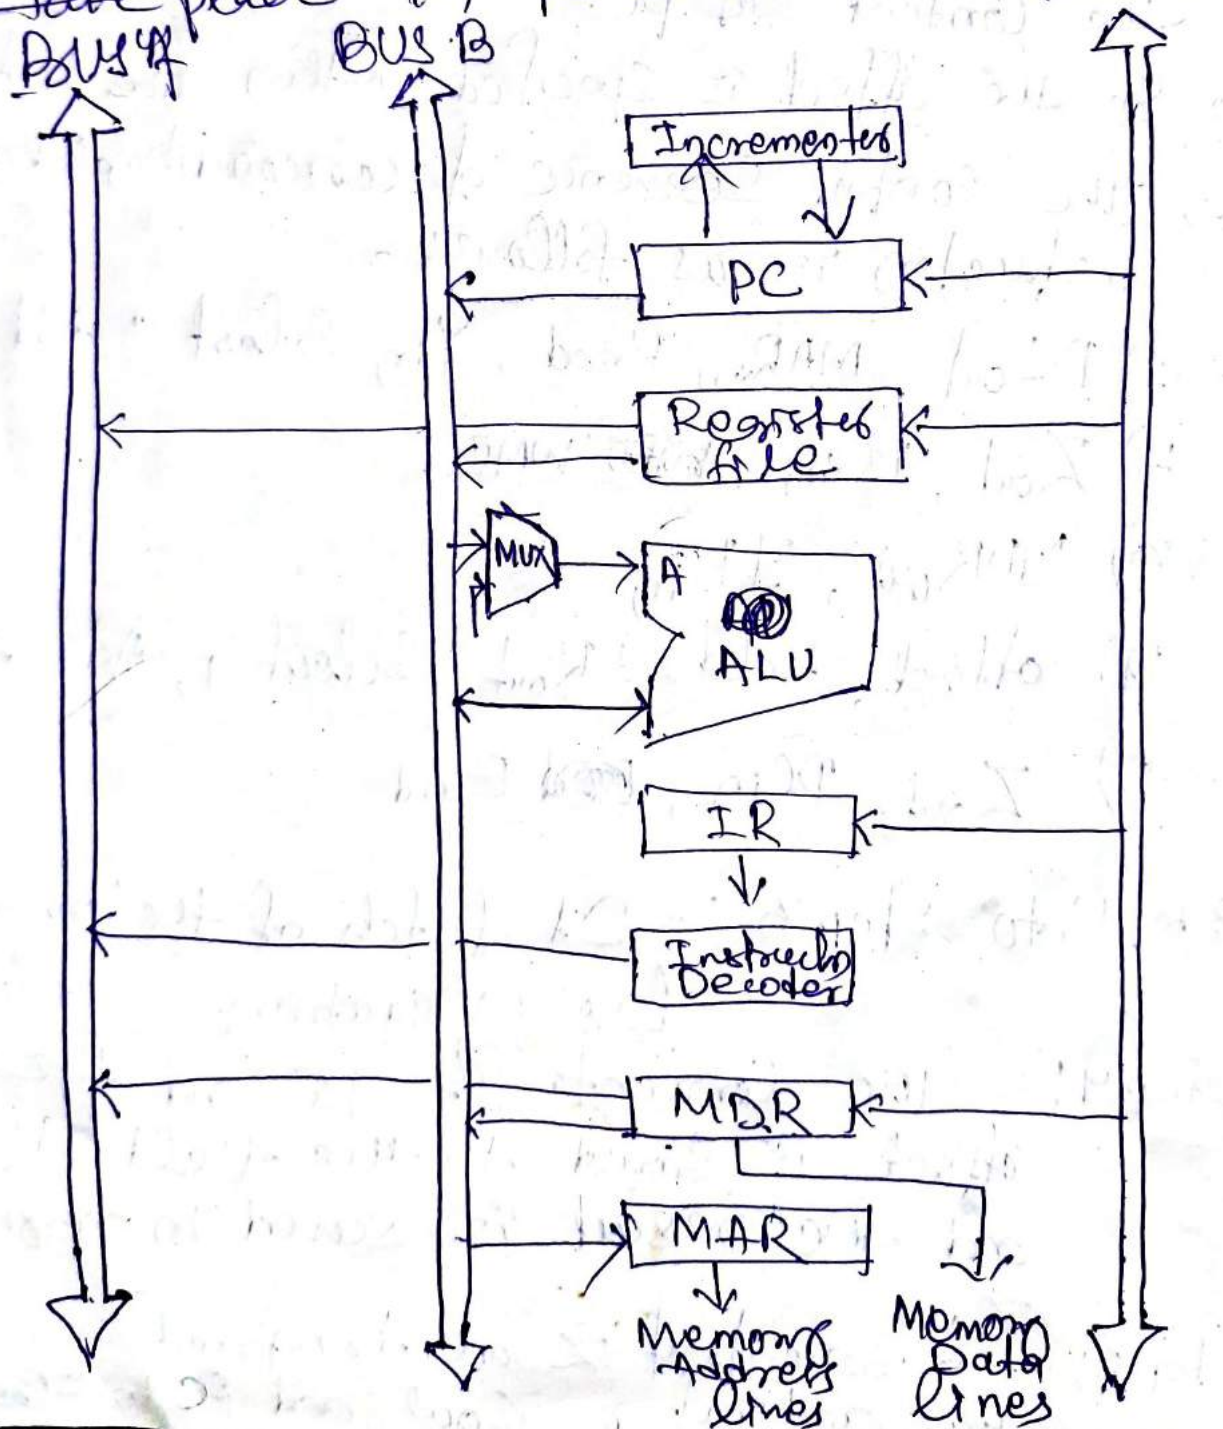 BUS A
BUS B
Incrementer
PC
Register
file
MUX
A
ALU
IR
Instructn
Decoder
MDR
MAR
Memory
Address
lines
Memory
Data
lines